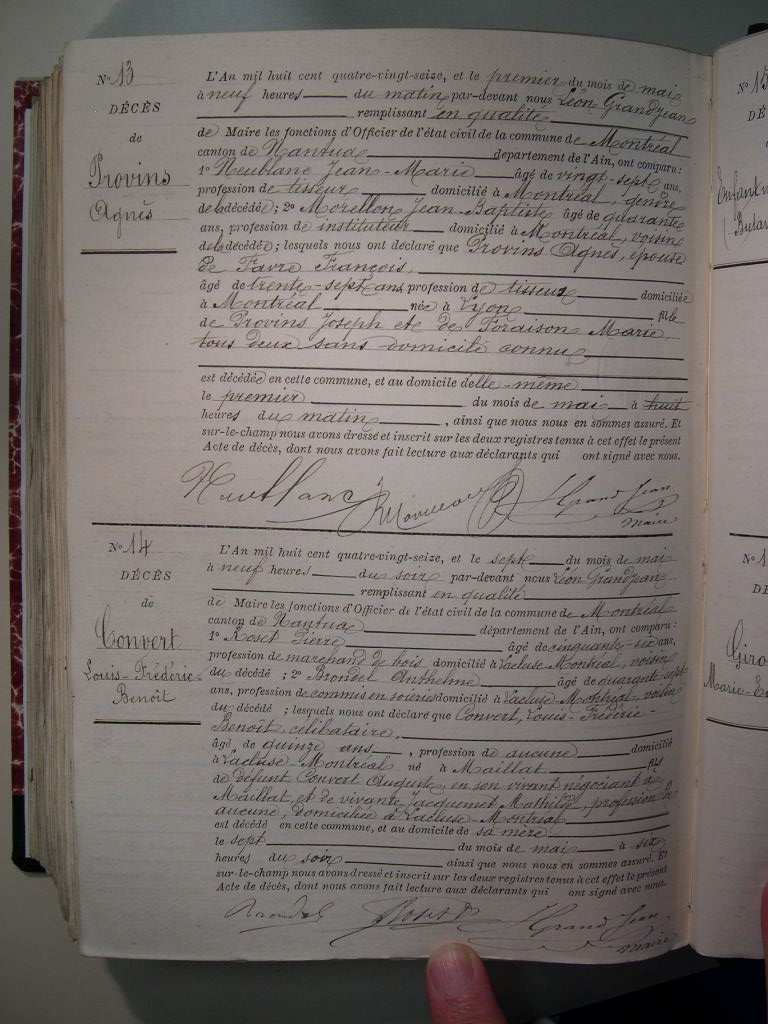 No 13
DÉCÈS
de
Provins
Agnès
L'An mil huit cent quatre-vingt-seize, et le premier du mois de mai
à neuf heures du matin par-devant nous Léon Grandjean
remplissant en qualité
de Maire les fonctions d'Officier de l'état civil de la commune de Montréal
canton de Nantua département de l'Ain, ont comparu:
1o Neublanc Jean-Marie âgé de vingt-sept ans,
profession de tisseur domicilié à Montréal, gendre
de la décédée; 2o Morellon Jean-Baptiste âgé de quarante
ans, profession de instituteur domicilié à Montréal, voisin
de la décédée; lesquels nous ont déclaré que Provins Agnès, épouse
de Favre François,
âgée de trente-sept ans, profession de tisseur domiciliée
à Montréal née à Lyon fille
de Provins Joseph et de Foraison Marie
tous deux sans domicile connu
est décédée en cette commune, et au domicile d'elle-même
le premier du mois de mai à huit
heures du matin, ainsi que nous nous en sommes assuré. Et
sur-le-champ nous avons dressé et inscrit sur les deux registres tenus à cet effet le présent
Acte de décès, dont nous avons fait lecture aux déclarants qui ont signé avec nous.
Neublanc Grand Jean
maire
No 14
DÉCÈS
de
Convert
Louis-Frédéric-
Benoît
L'An mil huit cent quatre-vingt-seize, et le sept du mois de mai
à neuf heures du soir par-devant nous Léon Grandjean
remplissant en qualité
de Maire les fonctions d'Officier de l'état civil de la commune de Montréal
canton de Nantua département de l'Ain, ont comparu:
1o Roset Pierre âgé de cinquante-six ans,
profession de marchand de bois domicilié à Lacluse-Montréal, voisin
du décédé; 2o Brondel Anthelme âgé de quarante-sept
ans, profession de commis en soieries domicilié à Lacluse-Montréal, voisin
du décédé; lesquels nous ont déclaré que Convert, Louis-Frédéric-
Benoît, célibataire,
âgé de quinze ans, profession de aucune domicilié
à Lacluse-Montréal né à Maillat fils
de défunt Convert Auguste, en son vivant négociant à
Maillat, et de vivante Jacquemet Mathilde, profession de
aucune, domiciliée à Lacluse-Montréal
est décédé en cette commune, et au domicile de sa mère
le sept du mois de mai à six
heures du soir ainsi que nous nous en sommes assuré. Et
sur-le-champ nous avons dressé et inscrit sur les deux registres tenus à cet effet le présent
Acte de décès, dont nous avons fait lecture aux déclarants qui ont signé avec nous.
Brondel Roset P. Grand Jean
maire
No 15
DÉ
Enfant
No 1
Giro
Marie-